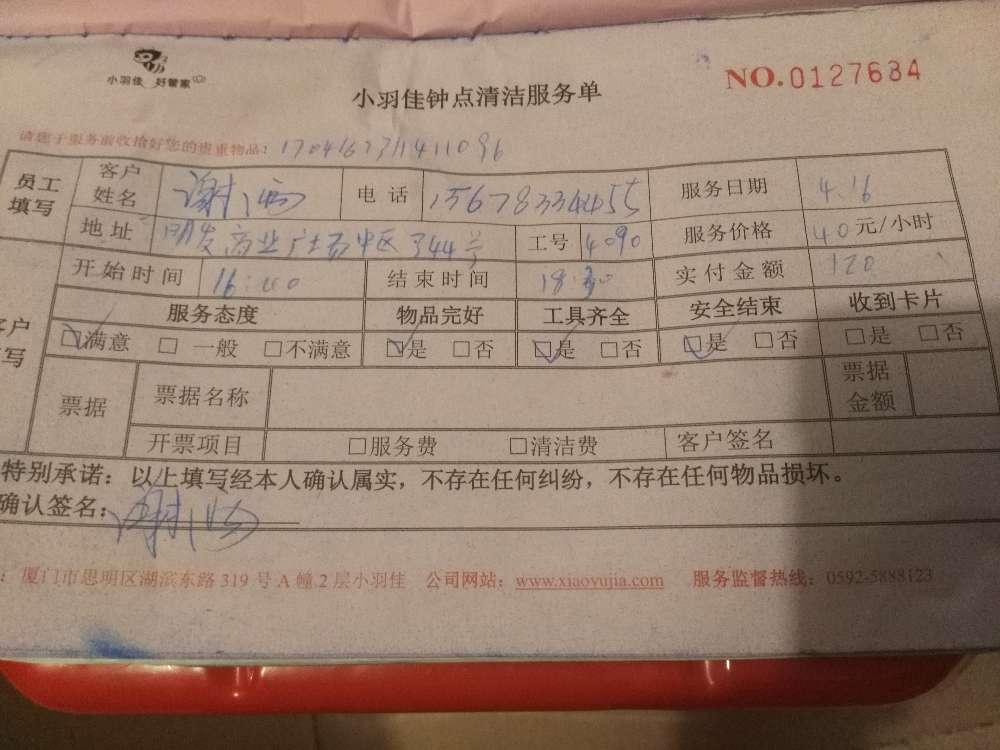 小羽佳 好管家
小羽佳钟点清洁服务单
NO.0127684
请您于服务前收拾好您的贵重物品：
员工填写 客户姓名 谢 电话 15678334455 服务日期 4.16
地址 明发商业广场中区344号 工号 4090 服务价格 40元/小时
开始时间 16:00 结束时间 实付金额 120
服务态度 物品完好 工具齐全 安全结束 收到卡片
☑满意 □一般 □不满意 ☑是 □否 ☑是 □否 ☑是 □否 □是 □否
票据 票据名称 票据金额
开票项目 □服务费 □清洁费 客户签名
特别承诺：以上填写经本人确认属实，不存在任何纠纷，不存在任何物品损坏。
确认签名：谢
厦门市思明区湖滨东路319号A幢2层小羽佳 公司网站：www.xiaoyujia.com 服务监督热线：0592-5888123